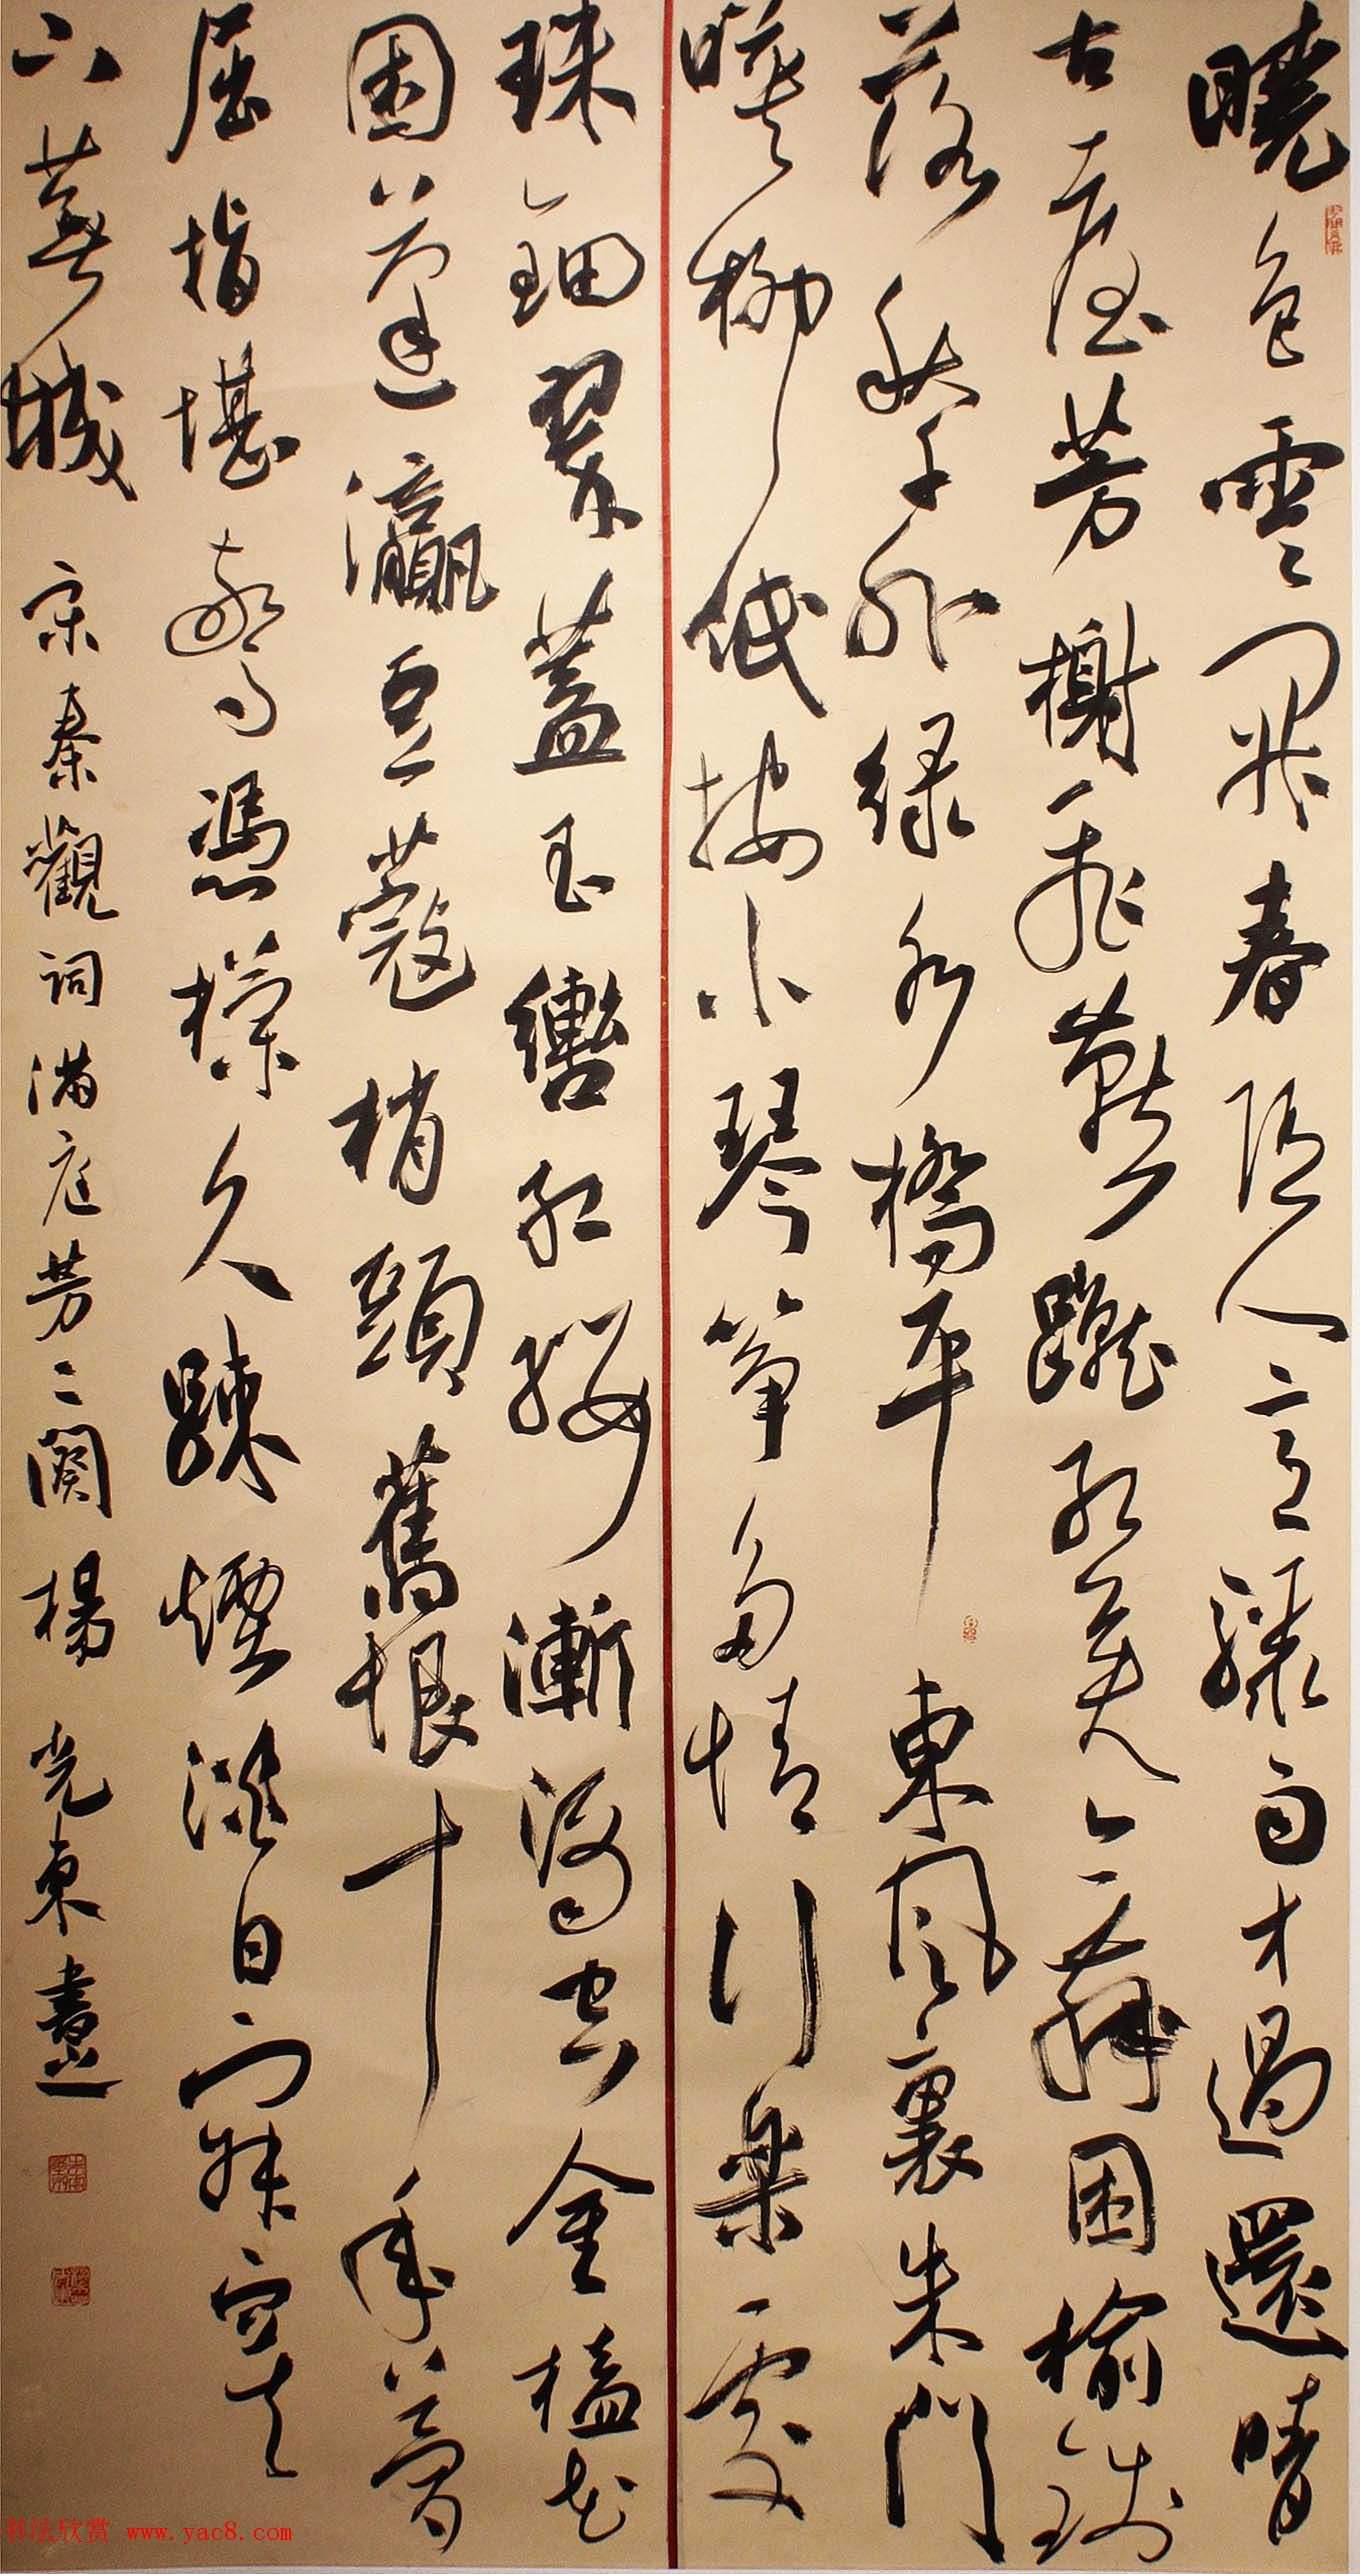 曉色雲開春隨人意驟雨才過還晴
古臺芳榭飛燕蹴紅英舞困榆錢
落秋千外綠水橋平東風裏朱門
暎柳低按小琴箏多情行樂處
珠鈿翠蓋玉轡紅纓漸酒空金榼花
困蓬瀛豆蔻梢頭舊恨十年夢
屈指堪驚憑欄久疎煙淡日寂寞
下蕪城 宋秦觀詞滿庭芳二闋 楊光東書
书法欣赏 www.yac8.com